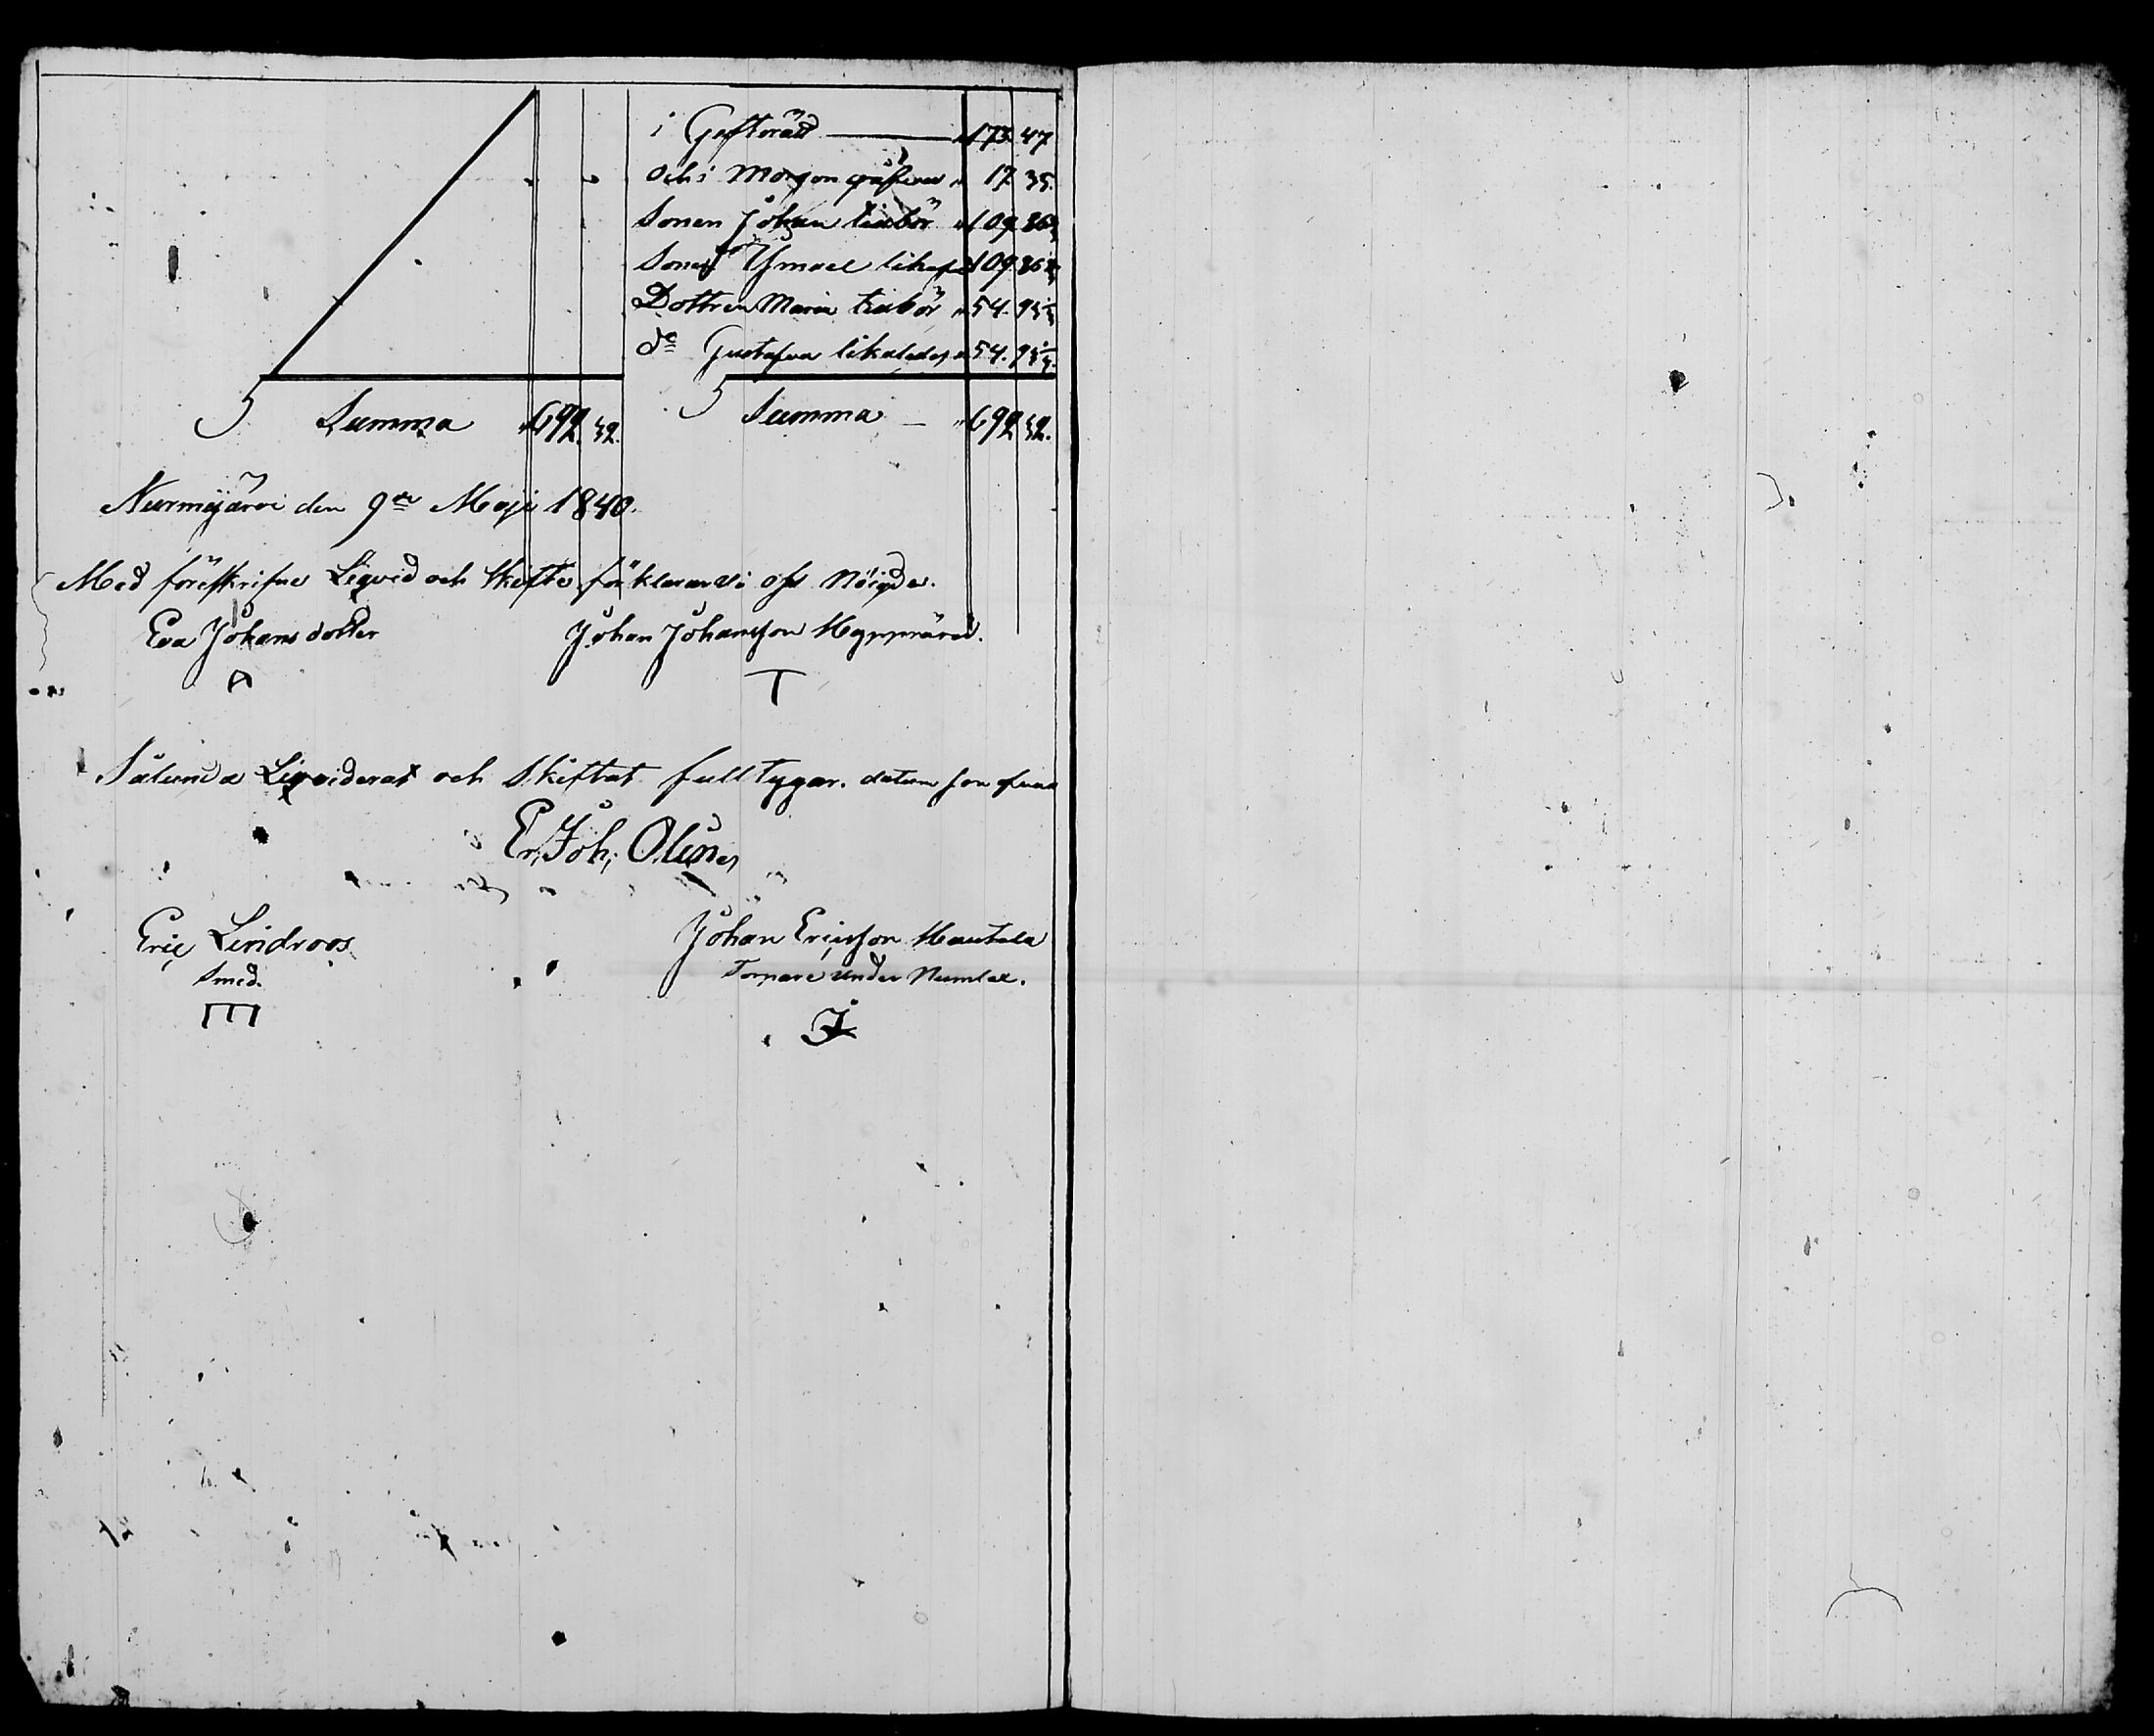 i Giftorätt — " 173. 47
och i Morgongåfvan " 17. 35.
Sonen Johan tillkör " 109. 86
Sonen Ismael likaså " 109. 86
Dottren Maria tillkör " 54. 93
do Gustafva likaledes " 54. 93
Summa " 692. 32. Summa — " 692. 32.
Nurmijärvi den 9de Maji 1840.
Med föreskrifne Liqvid och Skifte förklarar vi oss nöigda.
Eva Johans dotter Johan Johansson
Sålunda Liqviderat och Skiftat fulltygar. datum som ofvan
Er. Joh. Olin
Eric Lindroos Johan Ericsson Hautala
Smed. Torpare under Numlax.